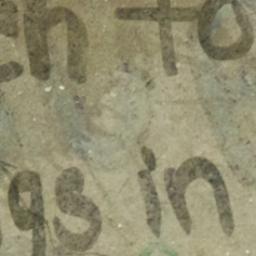 ch to
gs in